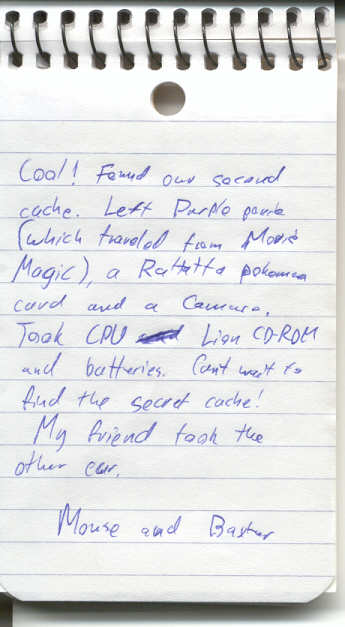 Cool! Found our second
cache. Left Purple
(which traveled from Movie
Magic), a Rattatta pokemon
card and a Camera.
Took CPU Lion CD-ROM
and batteries. Can't wait to
find the secret cache!
My friend took the
other
Mouse and